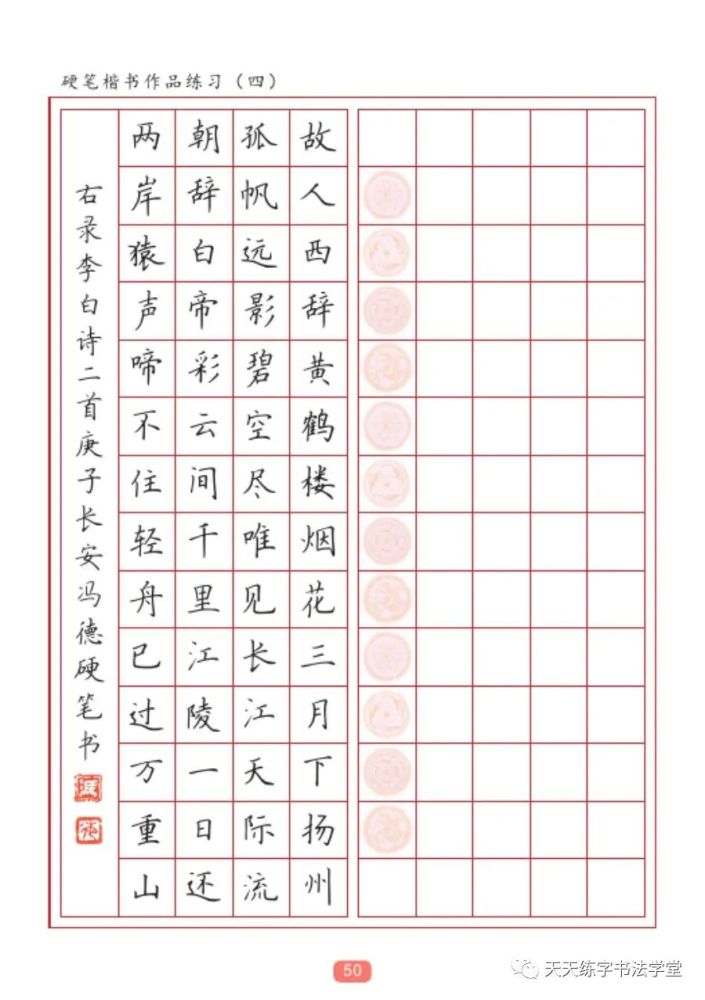 硬笔楷书作品练习（四）
故人西辞黄鹤楼烟花三月下扬州
孤帆远影碧空尽唯见长江天际流
朝辞白帝彩云间千里江陵一日还
两岸猿声啼不住轻舟已过万重山
右录李白诗二首庚子长安冯德硬笔书
50
天天练字书法学堂